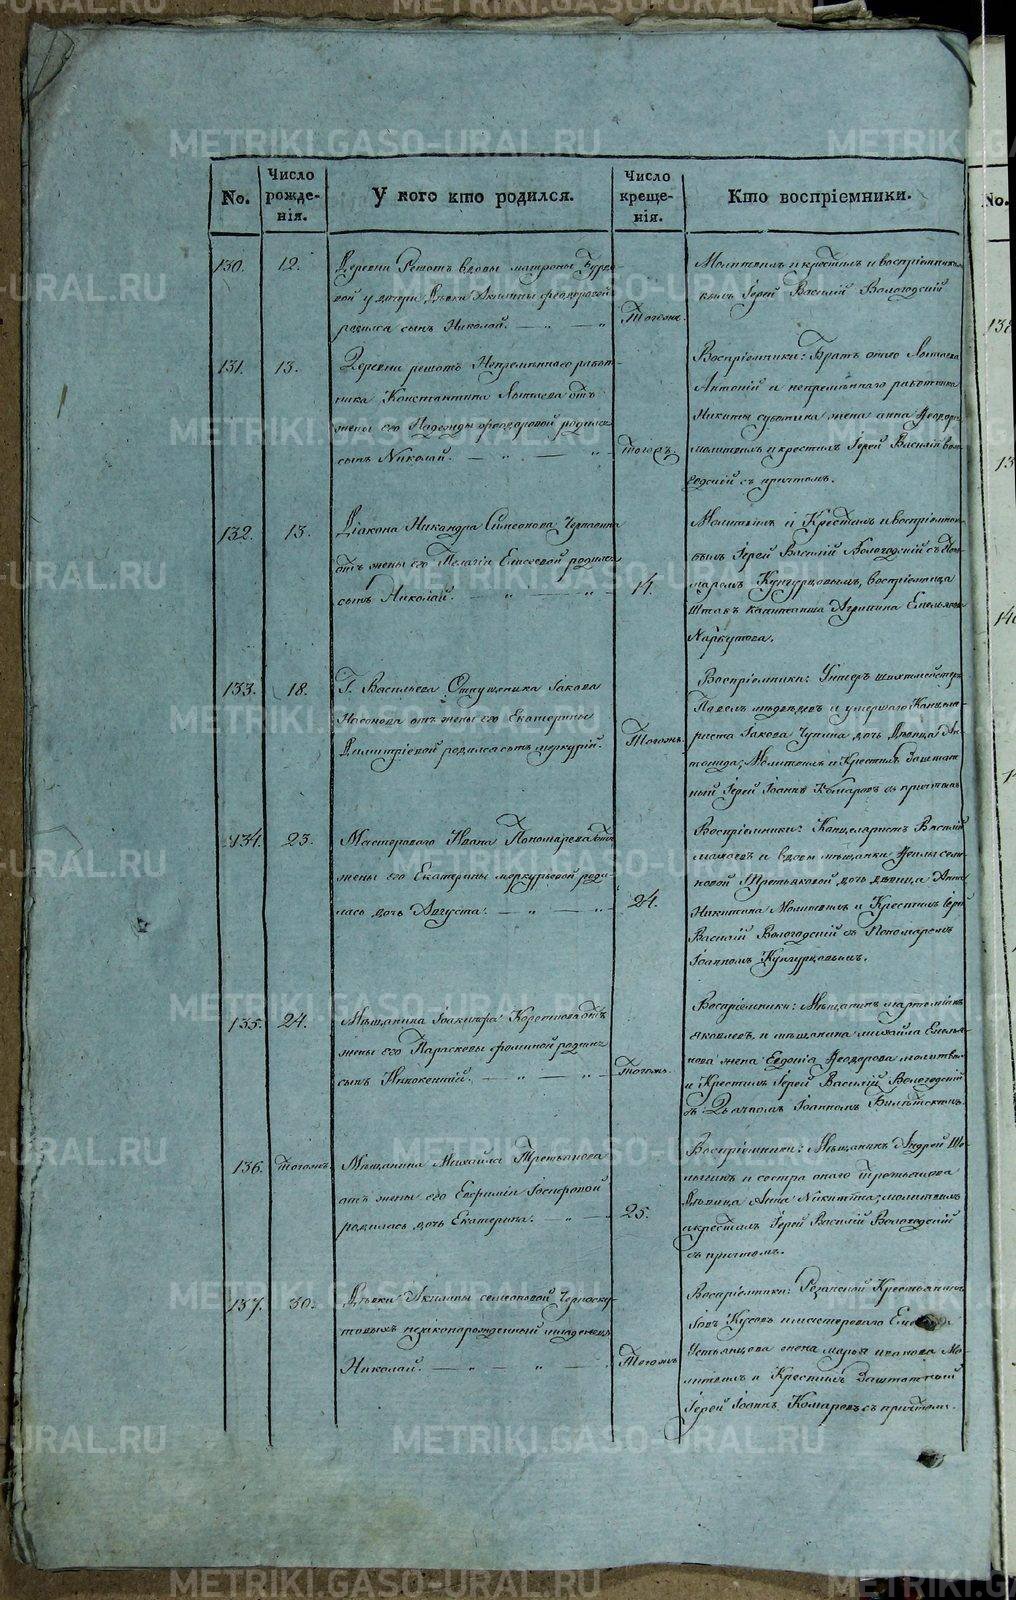 METRIKI.GASO-URAL.RU
No.
Число рожденія.
У кого кто родился.
Число крещенія.
Кто воспріемники.
130.
12.
Деревни Решотъ вдовы матроны
вой у дочери девки Акилины феодоровой
родился сынъ Николай.
Тогожъ.
Молитвилъ и крестилъ и воспріемникомъ
былъ Іерей Василій Вологодскій
131.
13.
Деревни решотъ Непременнаго работ-
ника Константина отъ
жены его Надежды феодоровой родился
сынъ Николай.
Тогожъ.
Воспріемники: Братъ онаго
Антоній и непременнаго работника
Никиты суботина жена анна Феодор
молитвилъ и крестилъ Іерей Василій Воло-
годскій съ причтомъ.
132.
13.
Діакона Никандра Симеонова
отъ жены его Пелагіи Елисеевой родился
сынъ Николай.
14.
Молитвилъ и Крестилъ и воспріемник
былъ Іерей Василій Вологодскій съ Поно-
маремъ Кунгурцовымъ, воспріемница
Штабъ капитанша Агрипина Емельянова
133.
18.
Г. Васильева Отпущеника Іакова
Насонова отъ жены его Екатерины
Димитріевой родился сынъ меркурій.
Тогожъ.
Воспріемники: Унтеръ шихтмейстеръ
Павелъ медведевъ и умершаго Канцеля-
риста Іакова Чупина дочь Девица Ан-
тонида; Молитвилъ и Крестилъ Заштат-
ный Іерей Іоаннъ Комаровъ съ причтомъ
134.
23.
Мастероваго Ивана Пономарева отъ
жены его Екатерины меркурьевой роди-
лась дочь Августа.
24.
Воспріемники: Канцеляристъ Василій
и вдовы мещанки
Третьяковой дочь девица Анна
Никитина Молитвилъ и Крестилъ Іерей
Василій Вологодскій съ Пономаремъ
Іоанномъ Кунгурцовымъ.
135.
24.
Мещанина Іоакинфа отъ
жены его Парасковьи фоминой родился
сынъ Инокентій.
Тогожъ.
Воспріемники: Мещанинъ
яковлевъ и мещанина михайла Емелья-
нова жена Евдокія Феодорова молитвилъ
и Крестилъ Іерей Василій Вологодскій
съ Дьячкомъ Іоанномъ
136.
Тогожъ.
Мещанина Михайла Третьякова
отъ жены его Евфиміи Іосифовой
родилась дочь Екатерина.
25.
Воспріемники: Мещанинъ Андрей
и сестра онаго Третьякова
Девица Анна Никитина; молитвилъ
и крестилъ Іерей Василій Вологодскій
съ причтомъ.
137.
30.
Девки Акилины семеоновой Черноску-
товыхъ незаконорожденный младенецъ
Николай.
Тогожъ
Воспріемники: Крестьянинъ
Іовъ Кусовъ и мастероваго
Устьянцова жена марья иванова Мо-
литвилъ и Крестилъ Заштатный
Іерей Іоаннъ Комаровъ съ причтомъ.
No.
138